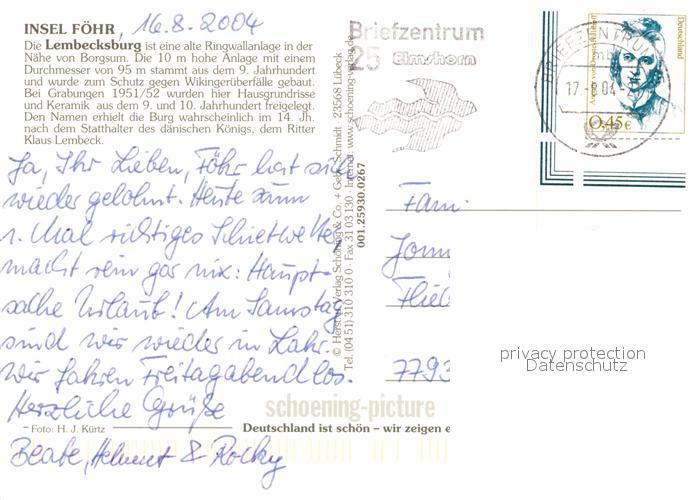 INSEL FÖHR, 16.8.2004
Die Lembecksburg ist eine alte Ringwallanlage in der
Nähe von Borgsum. Die 10 m hohe Anlage mit einem
Durchmesser von 95 m stammt aus dem 9. Jahrhundert
und wurde zum Schutz gegen Wikingerüberfälle gebaut.
Bei Grabungen 1951/52 wurden hier Hausgrundrisse
und Keramik aus dem 9. und 10. Jahrhundert freigelegt.
Den Namen erhielt die Burg wahrscheinlich im 14. Jh.
nach dem Statthalter des dänischen Königs, dem Ritter
Klaus Lembeck.
Ja, Ihr Lieben, Föhr hat sich
wieder gelohnt. Heute zum
1. Mal richtiges Schietwette
macht rein gar nix: Haupt-
sache Urlaub! Am Samstag
sind wir wieder in Lahr.
Wir fahren Freitagabend los.
Herzliche Grüße
Foto: H. J. Kürtz
Beate, Helmut & Rocky
Deutschland ist schön – wir zeigen e
schoening-picture
© Herst. u. Verlag Schöning & Co. + Gebr. Schmidt · 23568 Lübeck
Tel. (04 51) 310 310 0 · Fax 31 03 130 · Internet: www.schoening-verlag.de
001.25930.0267
Briefzentrum
25 Elmshorn
BRIEFZENTRUM
17.-8.04
Deutschland
0,45€
Fam.
7793
privacy protection
Datenschutz